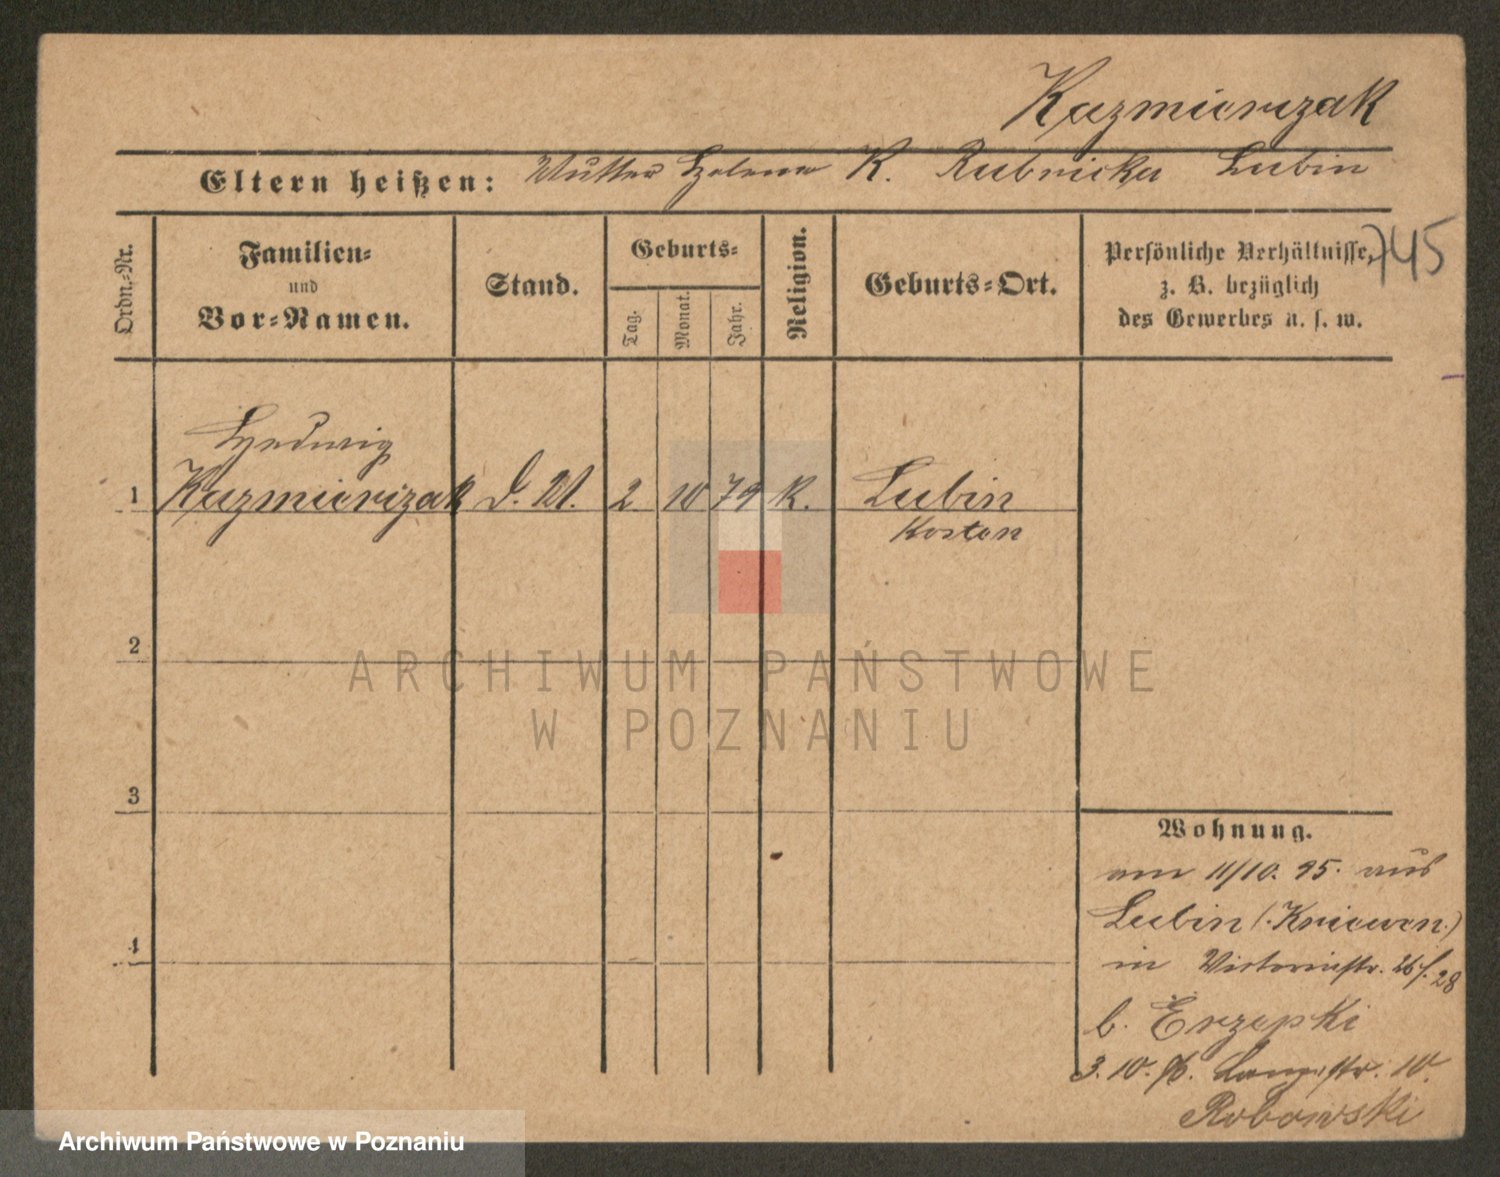 Kazmierczak
Eltern heißen: Mutter Helena K. Rubnicka Lubin
Ordn.-Nr.
Familien-
und
Vor-Namen.
Stand.
Geburts-
Tag.
Monat.
Jahr.
Religion.
Geburts-Ort.
Persönliche Verhältnisse,
z. B. bezüglich
des Gewerbes u. s. w.
745
Hedwig
1 Kazmierczak d. M. 2 10 79 K. Lubin
Kosten
2
3
4
ARCHIWUM PAŃSTWOWE
W POZNANIU
Wohnung.
am 11/10. 95. aus
Lubin (Kriewen.)
in Victoriastr. 26/28
b. Erzepki
3. 10. 96. Langestr. 10.
Robowski
Archiwum Państwowe w Poznaniu